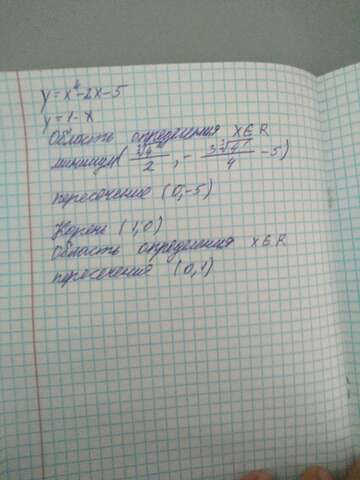 y = x⁴-2x-5
y = 1-x
Область определения x∈R
минимум(∛4/2, -3∛4/4 -5)
пересечение (0,-5)
Корень (1,0)
Область определения x∈R
пересечение (0,1)